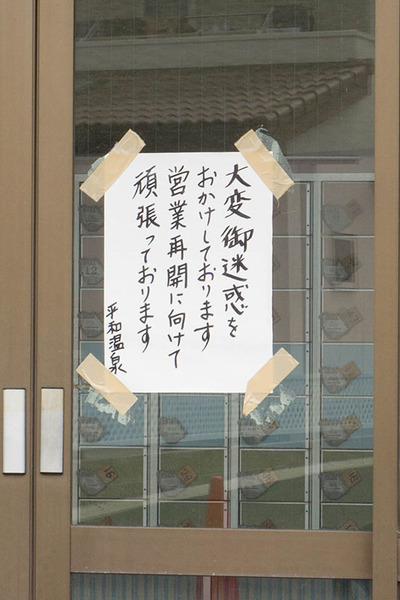 大変御迷惑を
おかけしております
営業再開に向けて
頑張っております
平和温泉